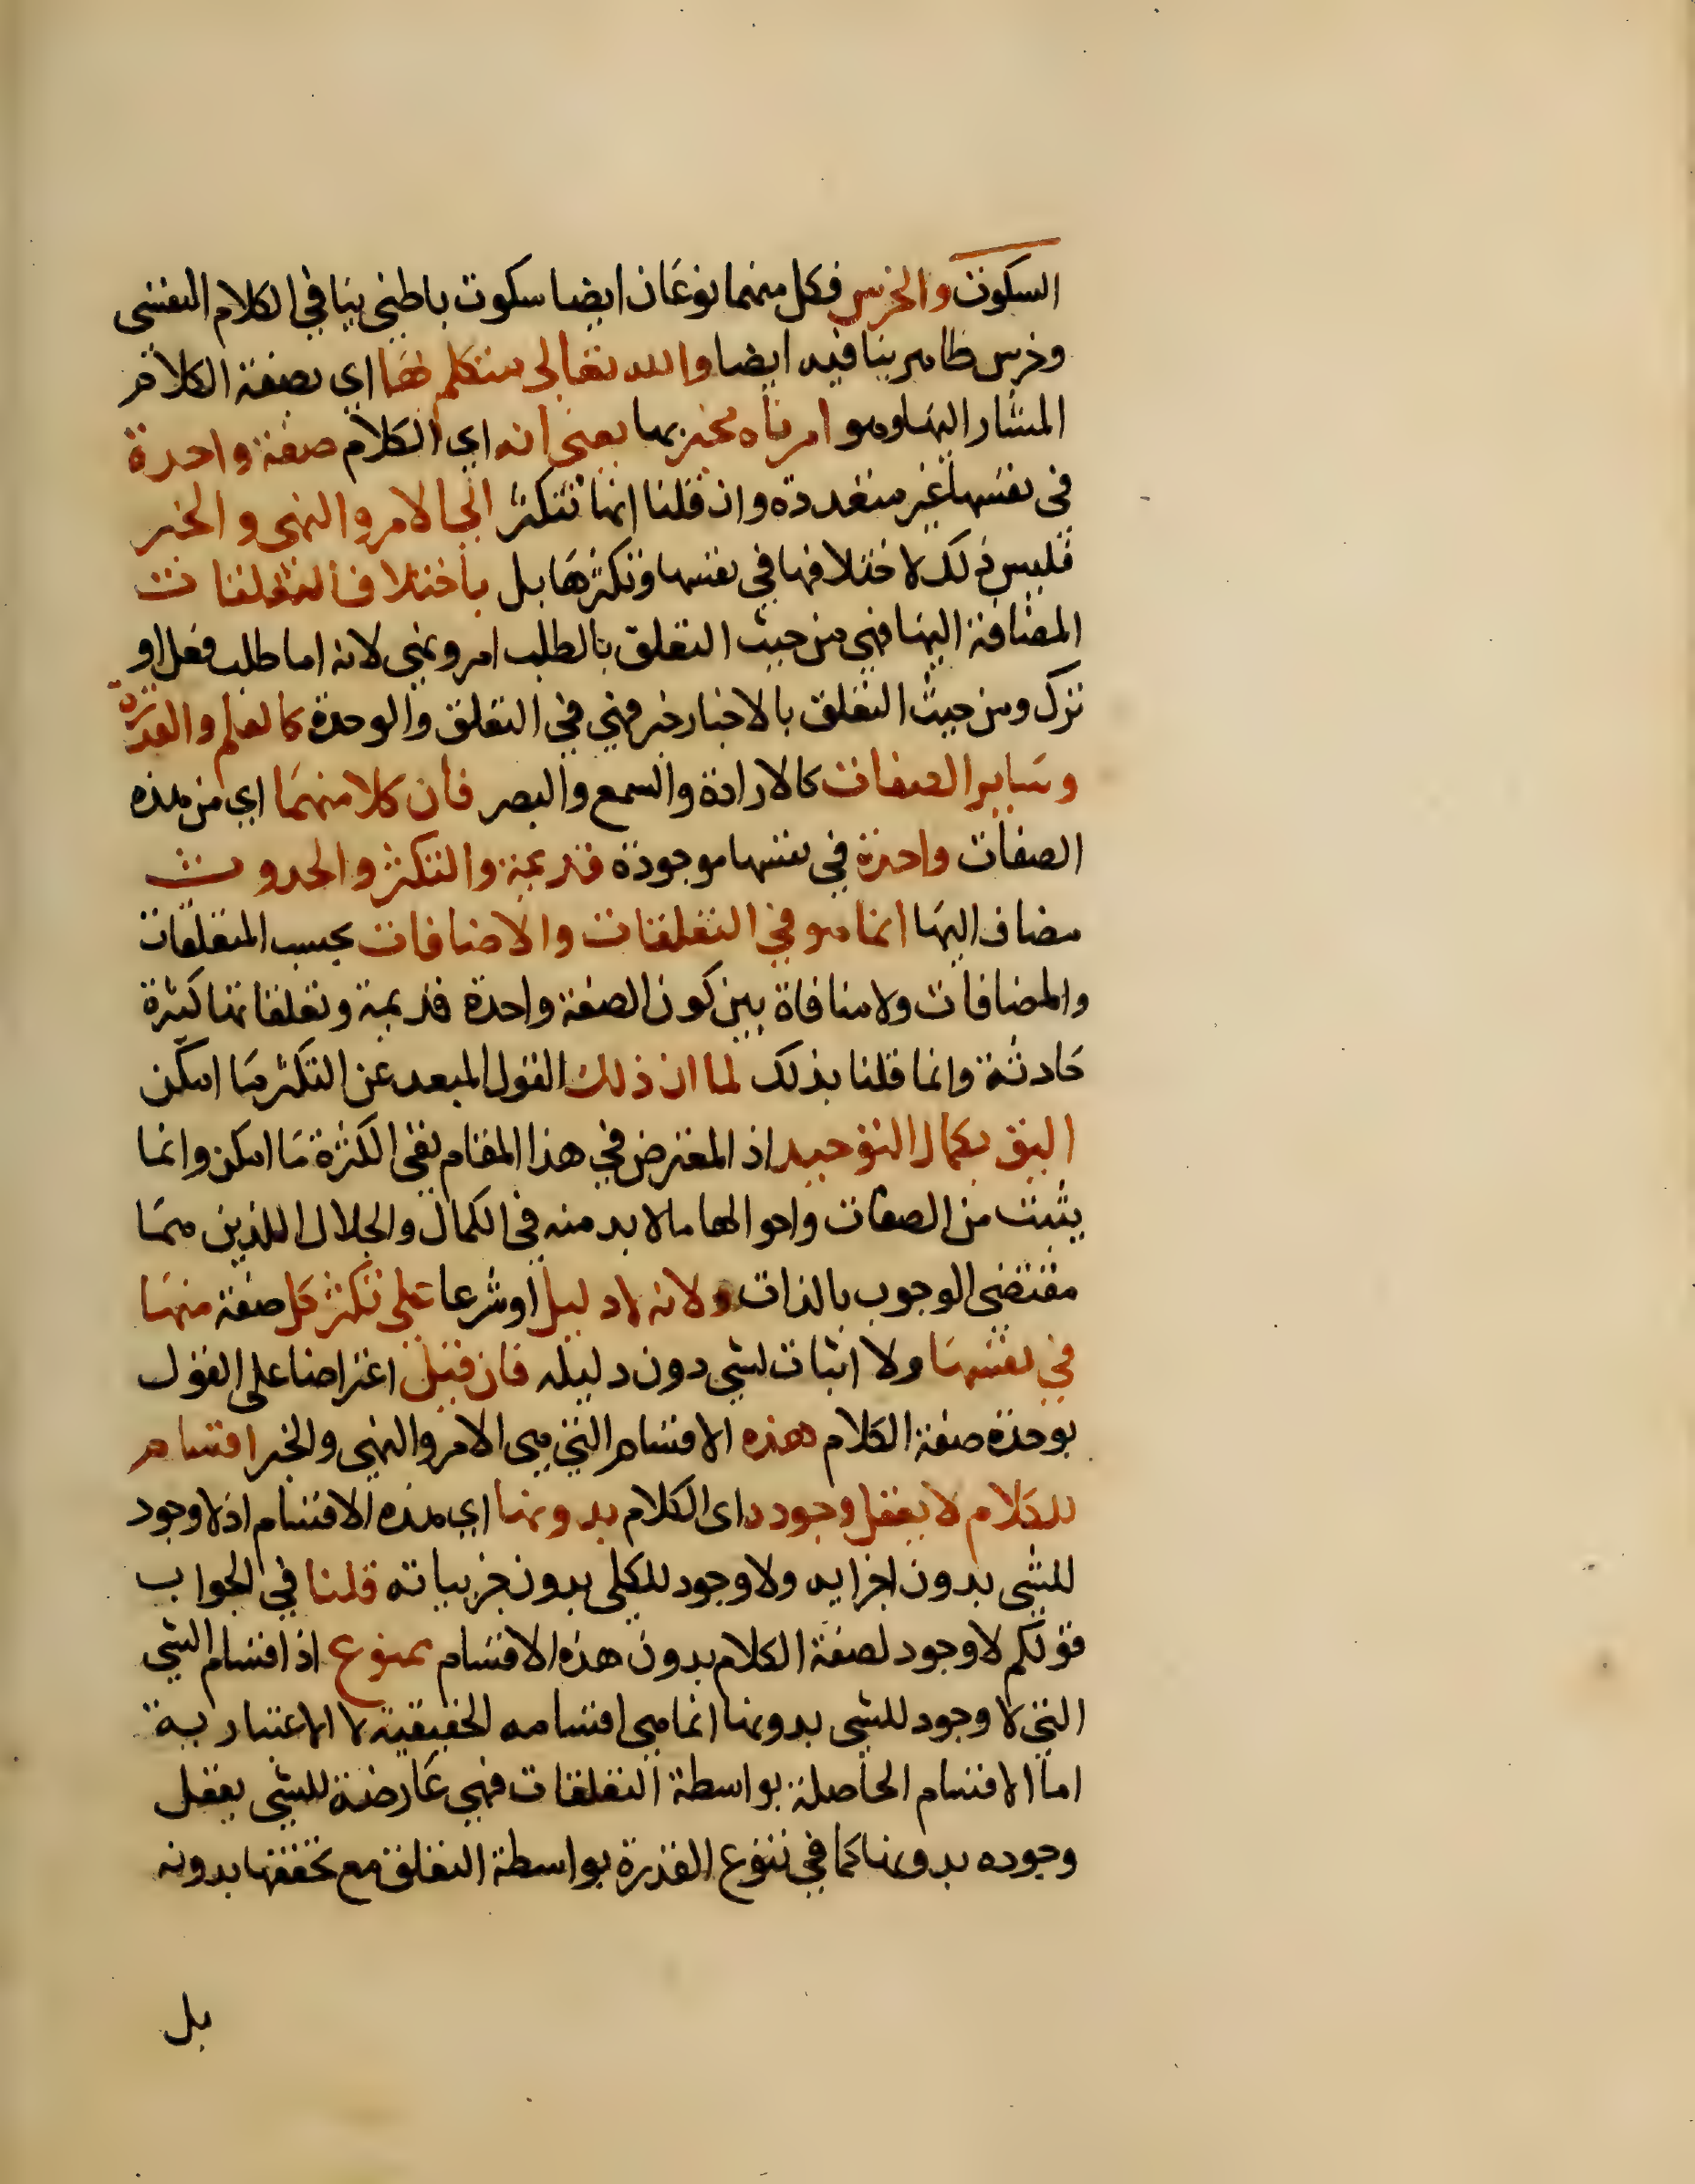 السكوت والخرس فكل منهما نوعان ايضا سكوت باطني ينافي الكلام النفسي
وخرس ظاهر ينافيه ايضا والله تعالى متكلم بها اي بصفة الكلام
المشار اليها وهو امر ناه مخبر بها يعني انه اي الكلام صفة واحدة
في نفسها غير متعددة وان قلنا انها تتكثر الى الامر والنهي والخبر
فليس ذلك لاختلافها في نفسها وتكثرها بل باختلاف التعلقات
المضافة اليها فهي من حيث التعلق بالطلب امر ونهي لانه اما طلب فعل او
ترك ومن حيث التعلق بالاخبار خبر فهي في التعلق والوحدة كالعلم والقدرة
وساير الصفات كالارادة والسمع والبصر فان كلا منهما اي من هذه
الصفات واحدة في نفسها موجودة قديمة والتكثر والحدوث
مضاف اليها انما هو في التعلقات والاضافات بحسب المتعلقات
والمضافات ولا منافاة بين كون الصفة واحدة قديمة وتعلقاتها كثيرة
حادثة وانما قلنا بذلك لما ان ذلك القول المبعد عن التكثر ما امكن
اليق بكمال التوحيد اذ المفترض في هذا المقام نفي الكثرة ما امكن وانما
يثبت من الصفات واحوالها ما لا بد منه في الكمال والجلال اللذين هما
مقتضى الوجوب بالذات ولانه لا دليل او شرعا على تكثر كل صفة منها
في نفسها ولا اثبات لشي دون دليله فان قيل اعتراضا على القول
بوحدة صفة الكلام هذه الاقسام التي هي الامر والنهي والخبر اقسام
للكلام لا يعقل وجوده اى الكلام بدونها اي هذه الاقسام اذ لا وجود
للشي بدون اجزايه ولا وجود للكلي بدون جزيياته قلنا في الجواب
قولكم لا وجود لصفة الكلام بدون هذه الاقسام ممنوع اذ اقسام الشي
التي لا وجود للشي بدونها انما هي اقسامه الحقيقية لا الاعتبارية
اما الاقسام الحاصلة بواسطة التعلقات فهي عارضة للشي يعقل
وجوده بدونها كما في تنوع القدرة بواسطة التعلق مع تحققها بدونه
بل